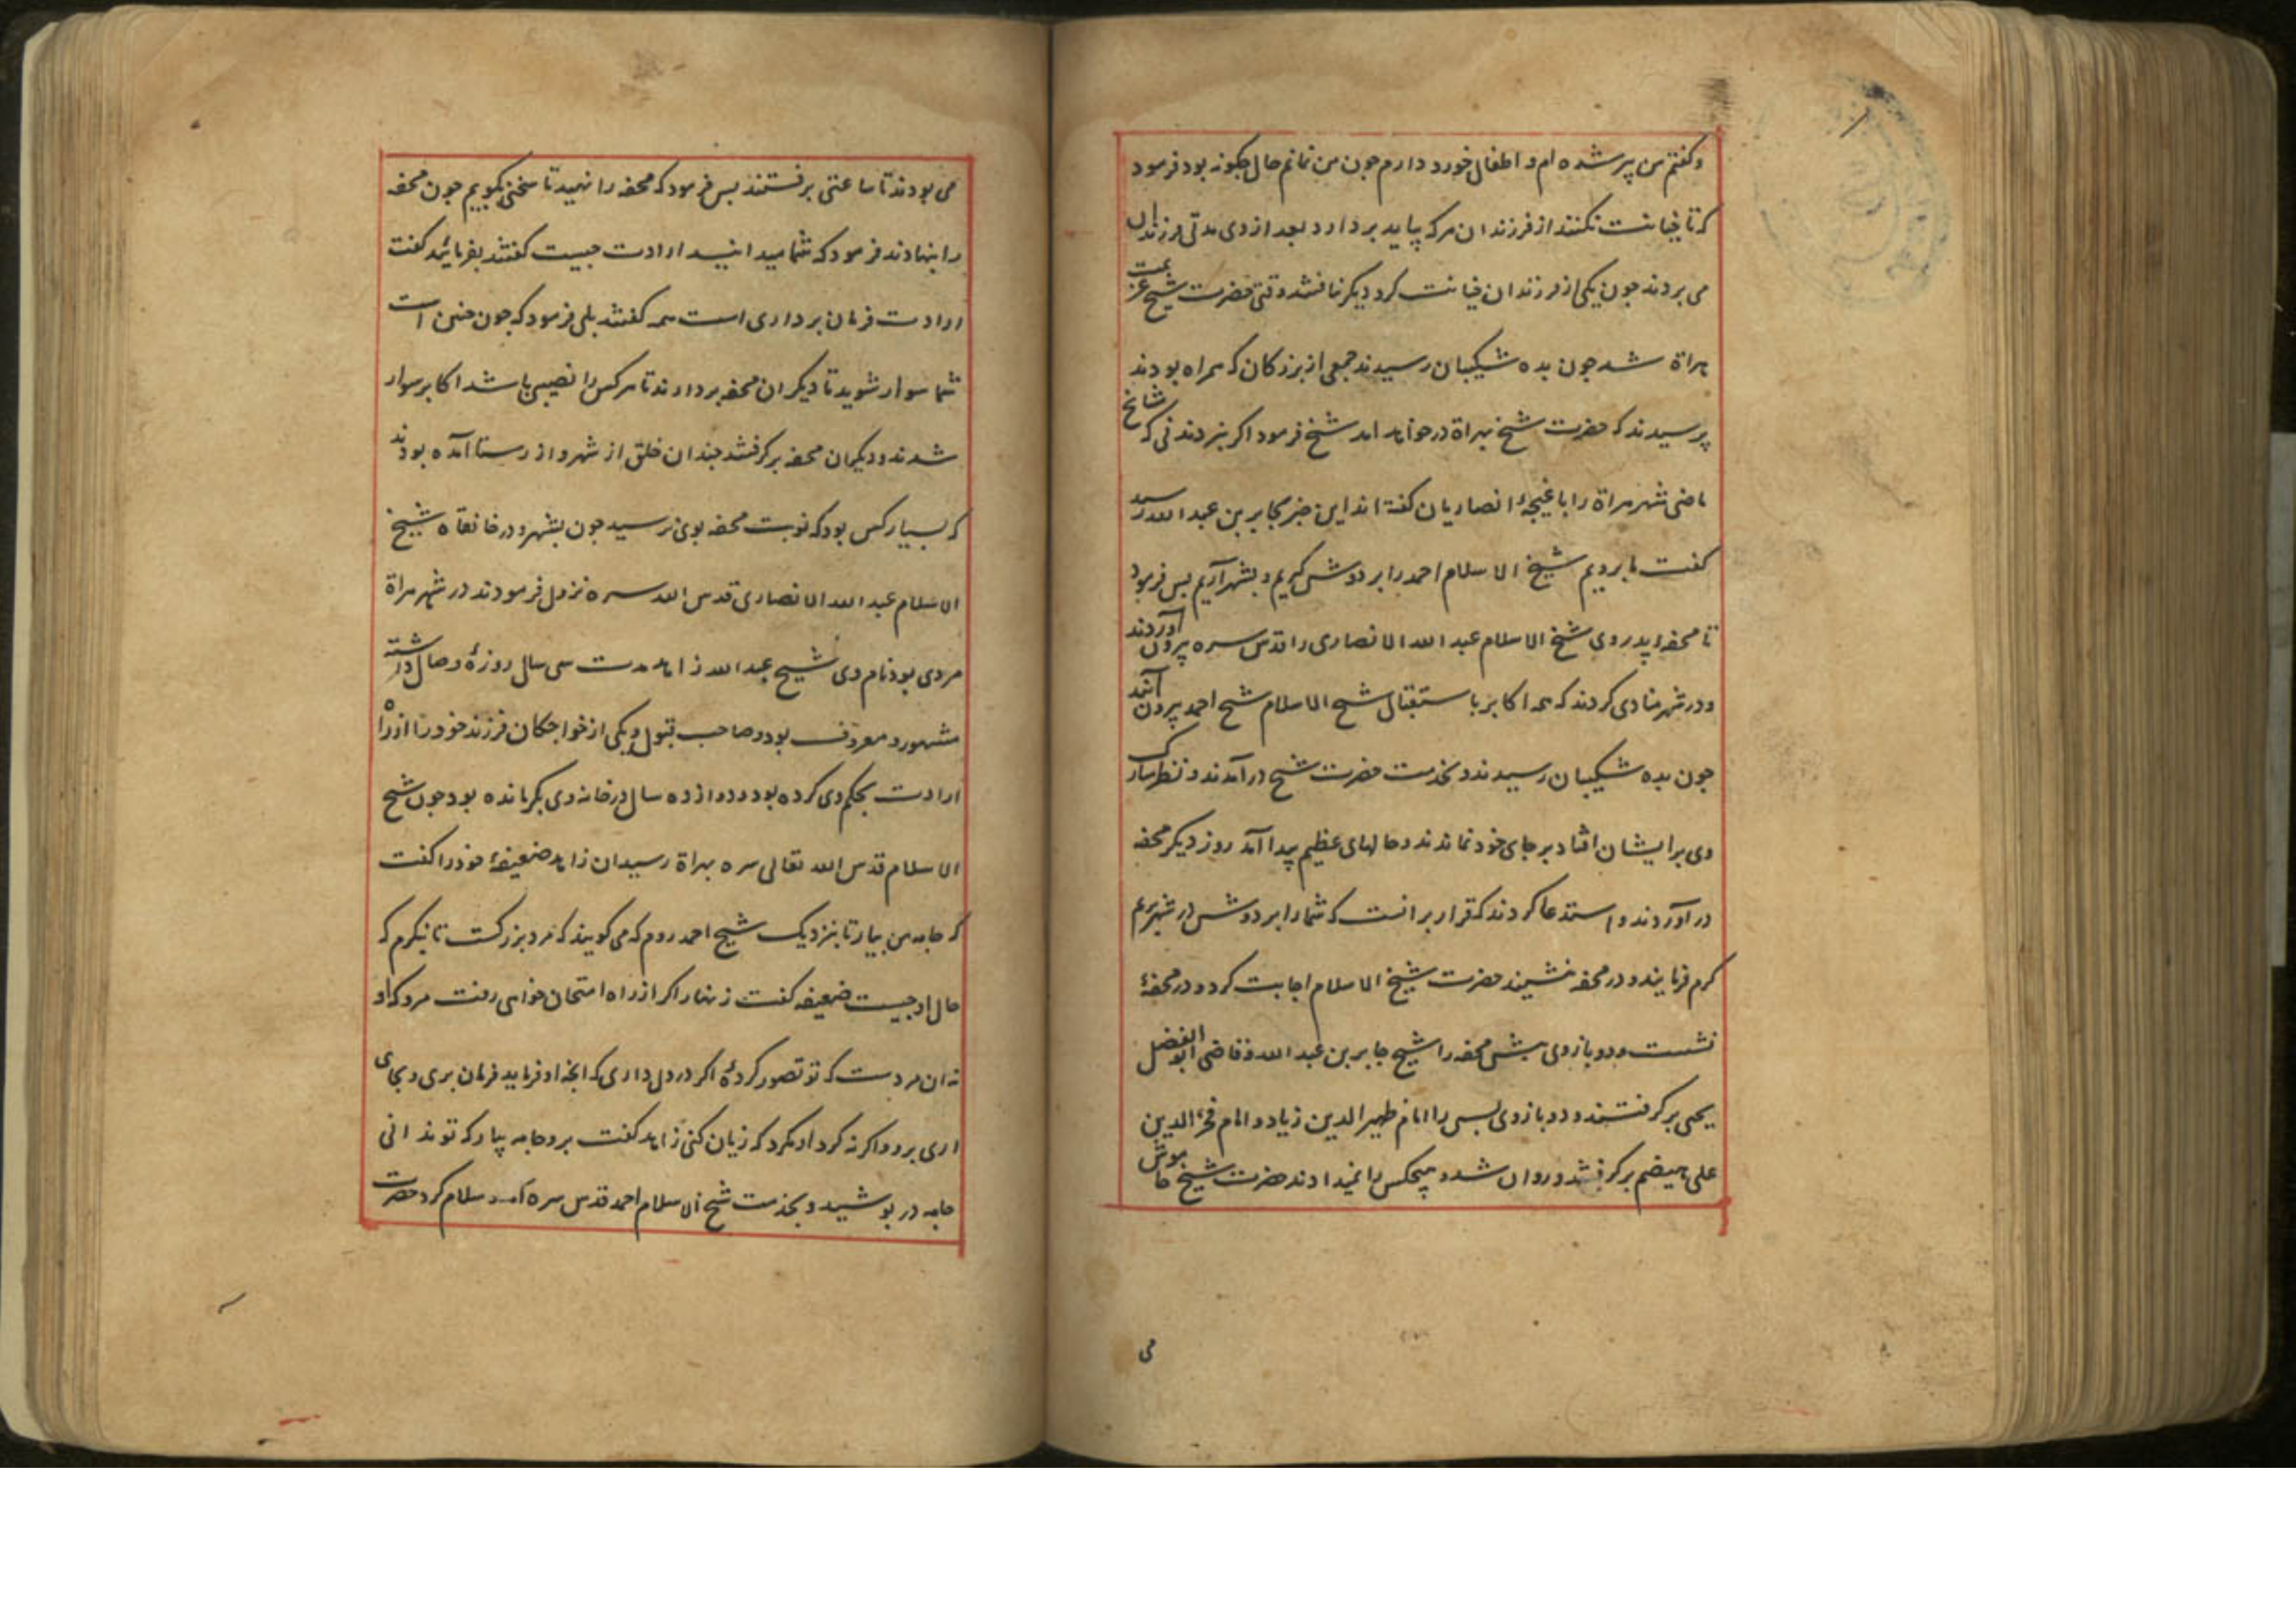 و کفتم من پیر شده ام و اطفال خورد دارم جون من نمانم حال جکونه بود فرمود
که تا خیانت نکنند از فرزندان هر که پیاید بردارد بعد از وی مدتی فرزندان
می بردند جون یکی از فرزندان خیانت کرد دیکر نافتند وقتی حضرت شیخ عزیمت
هراة شد جون بده شکیبان رسیدند جمعی از بزرکان که همراه بودند
پرسیدند که حضرت شیخ بهراة درخواهد امد شیخ فرمود اکر نبردندنی که مشایخ
ماضی شهر هراة را باغیجهٔ انصاریان کفته اند این خبر بجابر بن عبد الله رسید
کفت ما برویم شیخ الاسلام احمد را بر دوش کیریم و بشهر آریم بس فرمود
تا محفهٔ پدر وی شیخ الاسلام عبد الله الانصاری را قدس سره بیرون آوردند
و در شهر منادی کردند که همه اکابر باستقبال شیخ الاسلام شیخ احمد بیرون آیند
جون بده شکیبان رسیدند و بخدمت حضرت شیخ درآمدند و نظر مبارک
وی بر ایشان افتاد بر جای خود نماندند و حالهای عظیم پیدا آمد روز دیکر محفه
در آوردند و استدعا کردند که قرار بر انست که شما را بر دوش در شهر بریم
کرم فرمایند و در محفه نشینند حضرت شیخ الاسلام اجابت کرد و در محفهٔ
نشست و دو بازوی بیش محفه را شیخ جابر بن عبد الله و قاضی ابو الفضل
یحیی بر کرفتند و دو بازوی بس را امام ظهیر الدین زیاد و امام فخر الدین
علی هیضم بر کرفتند و روان شدند هیچکس را نمیدادند حضرت شیخ خاموش
می
می بودند تا ساعتی برفتند بس فرمود که محفه را نهید تا سخنی بکویم جون محفه
را بنهادند فرمود که شما میدانید ارادت جیست کفتند بفرمائید کفت
ارادت فرمان برداری است همه کفتند بلی فرمود که جون جنین است
شما سوار شوید تا دیکران محفه بردارند تا هر کس را نصیبی باشد اکابر سوار
شدند و دیکران محفه بر کرفتند جندان خلق از شهر و از رستا آمده بودند
که بسیار کس بود که نوبت محفه بوی نرسید جون بشهر و در خانقاه شیخ
الاسلام عبد الله الانصاری قدس الله سره نزول فرمودند در شهر هراة
مردی بود نام وی شیخ عبد الله زاهد مدت سی سال روزهٔ وصال داشته
مشهور و معروف بود و صاحب قبول و یکی از خواجکان فرزند خود را از راه
ارادت بحکم وی کرده بود و دوازده سال در خانه وی بکر مانده بود جون شیخ
الاسلام قدس الله تعالی سره بهراة رسید ان زاهد ضعیفهٔ خود را کفت
که جامه من بیار تا بنزدیک شیخ احمد روم که می کویند که مرد بزرکست تا بنکرم که
حال او جیست ضعیفه کفت زنهار اکر از راه امتحان خواهی رفت مرو که او
نه ان مردست که تو تصور کردهٔ اکر در دل داری که انجه او فرماید فرمان بری و بجای
اری برو و اکر نه کرد او مکرد که زیان کنی زاهد کفت برو جامه بیار که تو ندانی
جامه در بوشید و بخدمت شیخ الاسلام احمد قدس سره آمد و سلام کرد حضرت